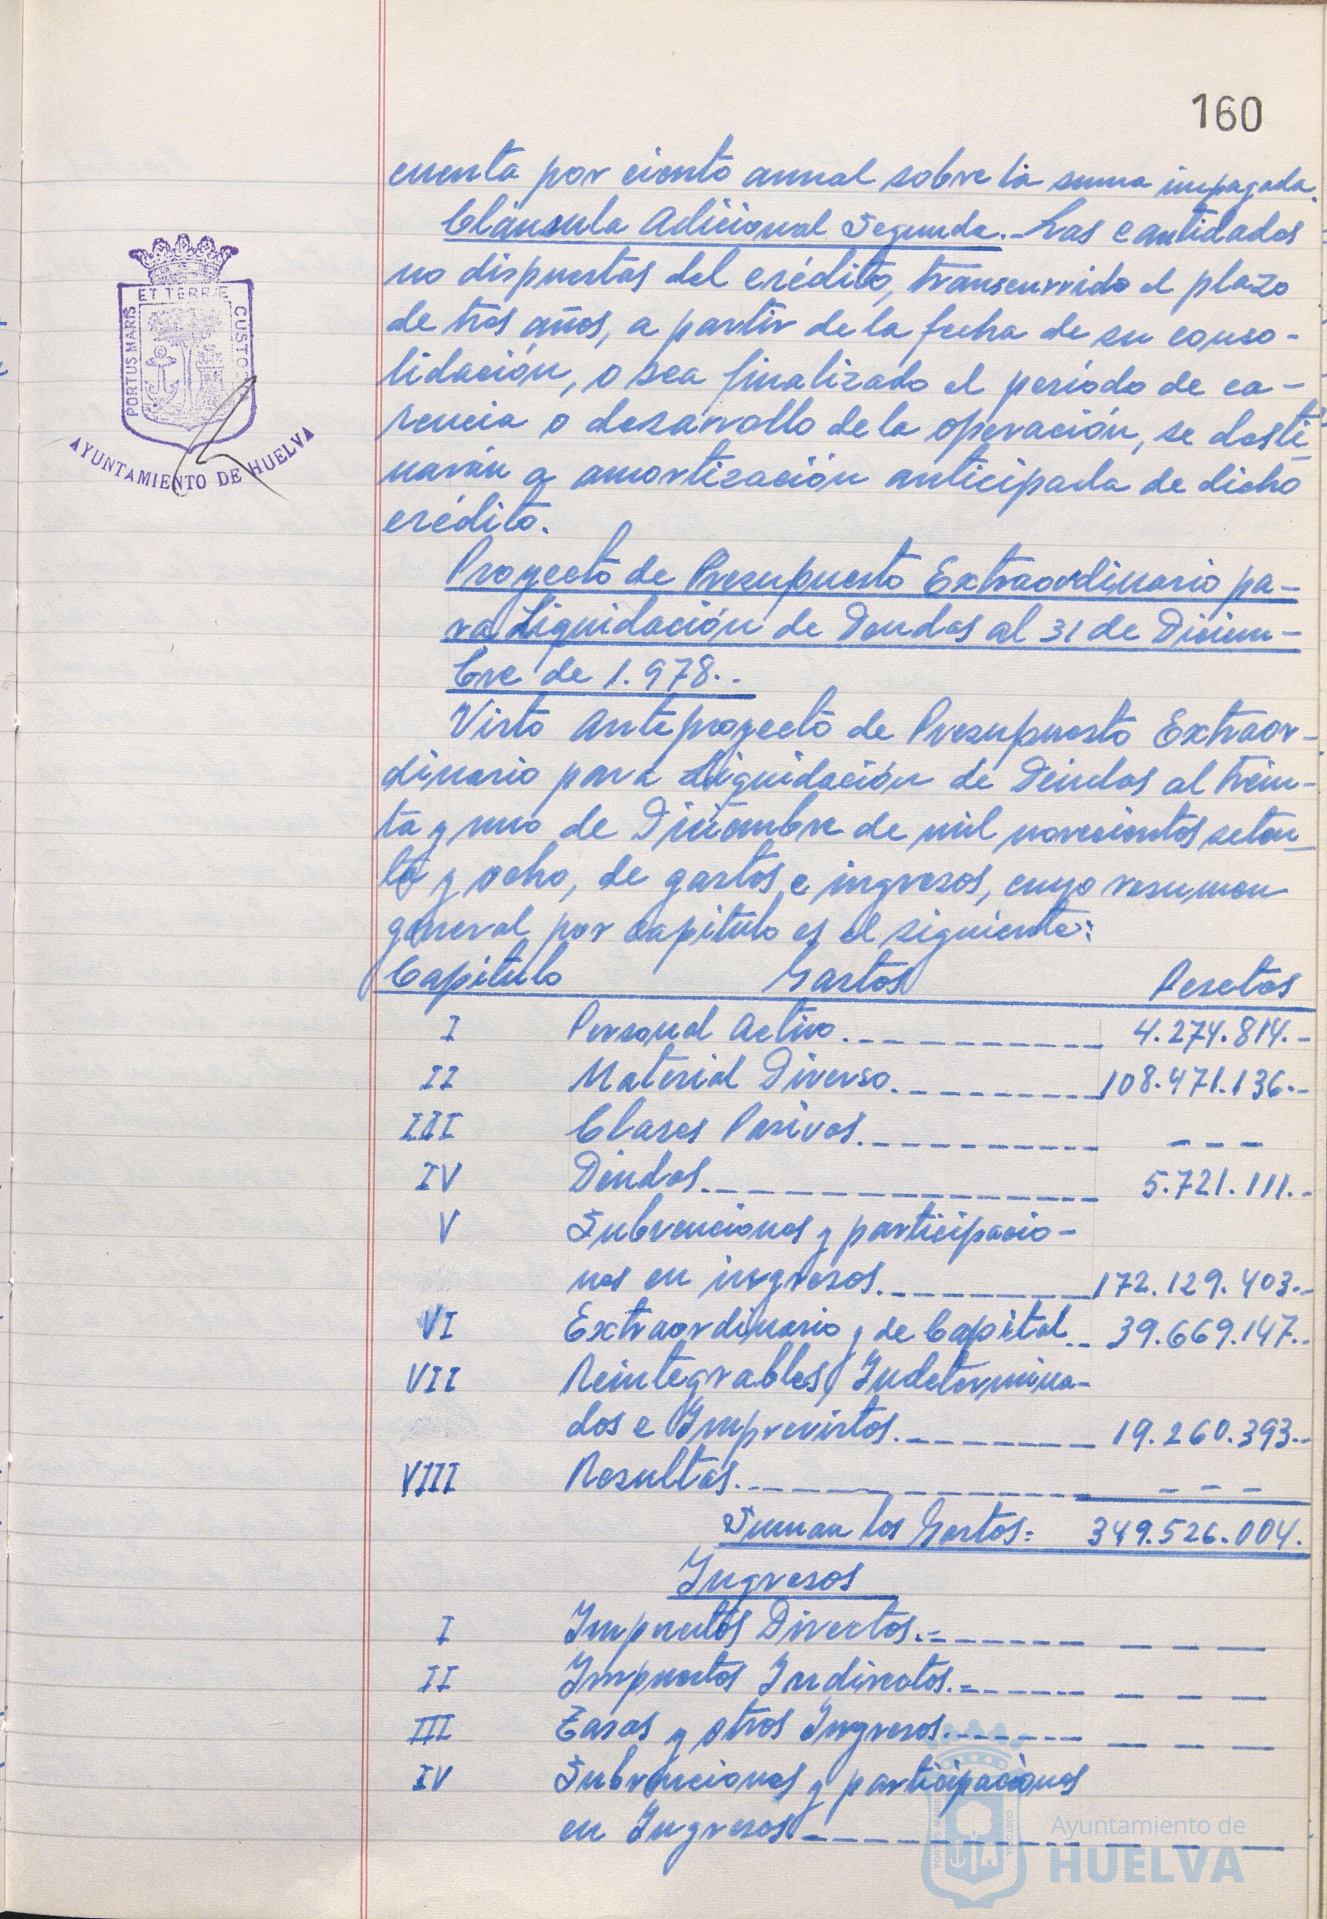 160
cuenta por ciento annal sobre la suma impagada.
Cláusula Adicional Segunda.- Las cantidades
no dispuestas del crédito, transcurrido el plazo
de tres años, a partir de la fecha de su conso-
lidación, o sea finalizado el período de ca-
rencia o desarrollo de la operación, se desti-
narán a amortización anticipada de dicho
crédito.
Proyecto de Presupuesto Extraordinario pa-
ra Liquidación de Deudas al 31 de Diciem-
bre de 1.978.-
Visto Anteproyecto de Presupuesto Extraor-
dinario para Liquidación de Deudas al trein-
ta y uno de Diciembre de mil novecientos seten-
ta y ocho, de gastos e ingresos, cuyo resumen
general por capítulo es el siguiente:
Capítulo Gastos Pesetas
I Personal Activo. 4.274.814.-
II Material Diverso. 108.471.136.-
III Clases Pasivas. - - -
IV Deudas. 5.721.111.-
V Subvenciones y participacio-
nes en ingresos. 172.129.403.-
VI Extraordinario y de Capital 39.669.147.-
VII Reintegrables, Indetermina-
dos e Imprevistos. 19.260.393.-
VIII Resultas. - - -
Suman los Gastos: 349.526.004.
Ingresos
I Impuestos Directos.- - - -
II Impuestos Indirectos.- - - -
III Tasas y otros Ingresos. - - -
IV Subvenciones y participaciones
en Ingresos. - - -
PORTUS MARIS ET TERRE CUSTO
AYUNTAMIENTO DE HUELVA
Ayuntamiento de
HUELVA